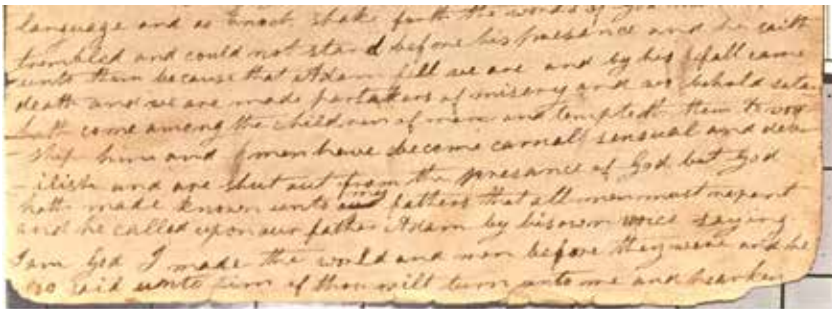 language and as Enoch spake forth the words of God the
trembled and could not stand before his presance and he saith
unto them because that Adam fell we are and by his fall came
death and we are made partakers of misery and wo behold satan
hath come among the children of men and tempteth them to wor
-ship him and men have become carnal sensual and dev
-ilish and are shut out from the presance of God but God
hath made known unto my fathers that all men must repent
and he called upon our father Adam by his own voice saying
I am God I made the world and men before they were and he
also said unto him if thou wilt turn unto me and hearken